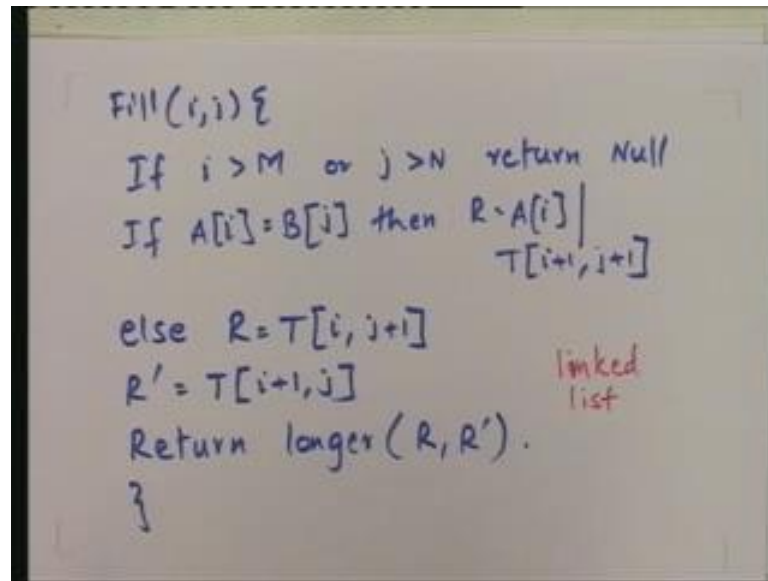 Fill(i,j) {
If i > M or j > N return Null
If A[i] = B[j] then R = A[i] |
T[i+1, j+1]
else R = T[i, j+1]
R' = T[i+1, j]
linked
list
Return longer (R, R').
}